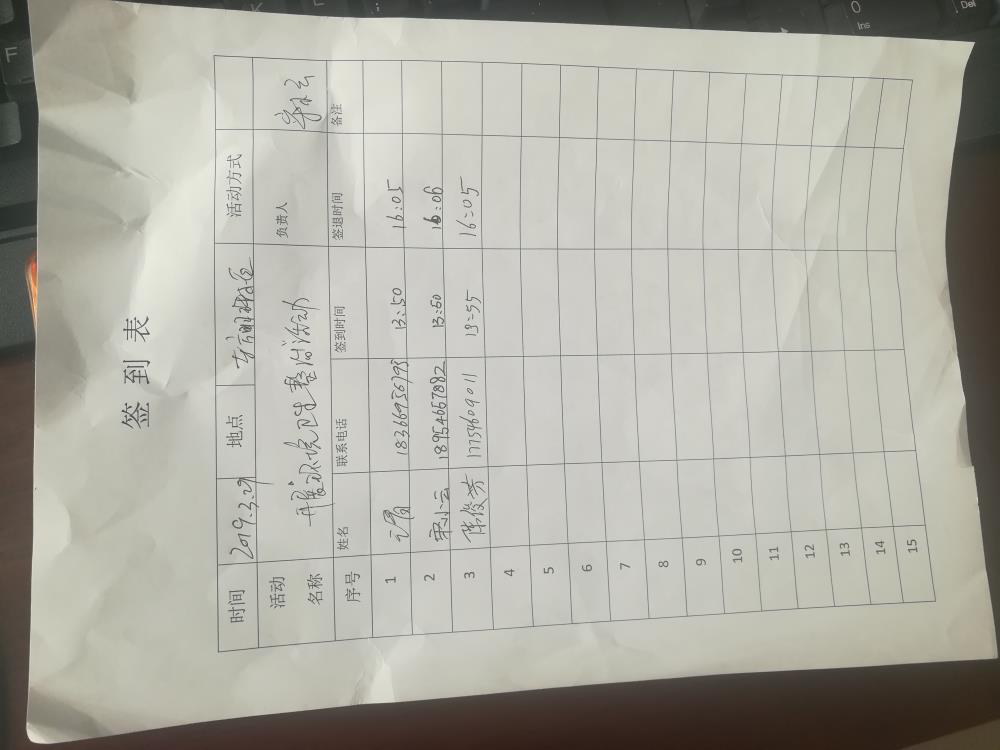 签到表
时间 2019.3.29 地点 活动方式
活动名称 开展环境卫生整治活动 负责人 宋小云
序号 姓名 联系电话 签到时间 签退时间 备注
1 18366956793 13:50 16:05
2 宋小云 18954667882 13:50 16:06
3 陈俊芳 17754609011 13:55 16:05
4
5
6
7
8
9
10
11
12
13
14
15
F
0
Ins
Del